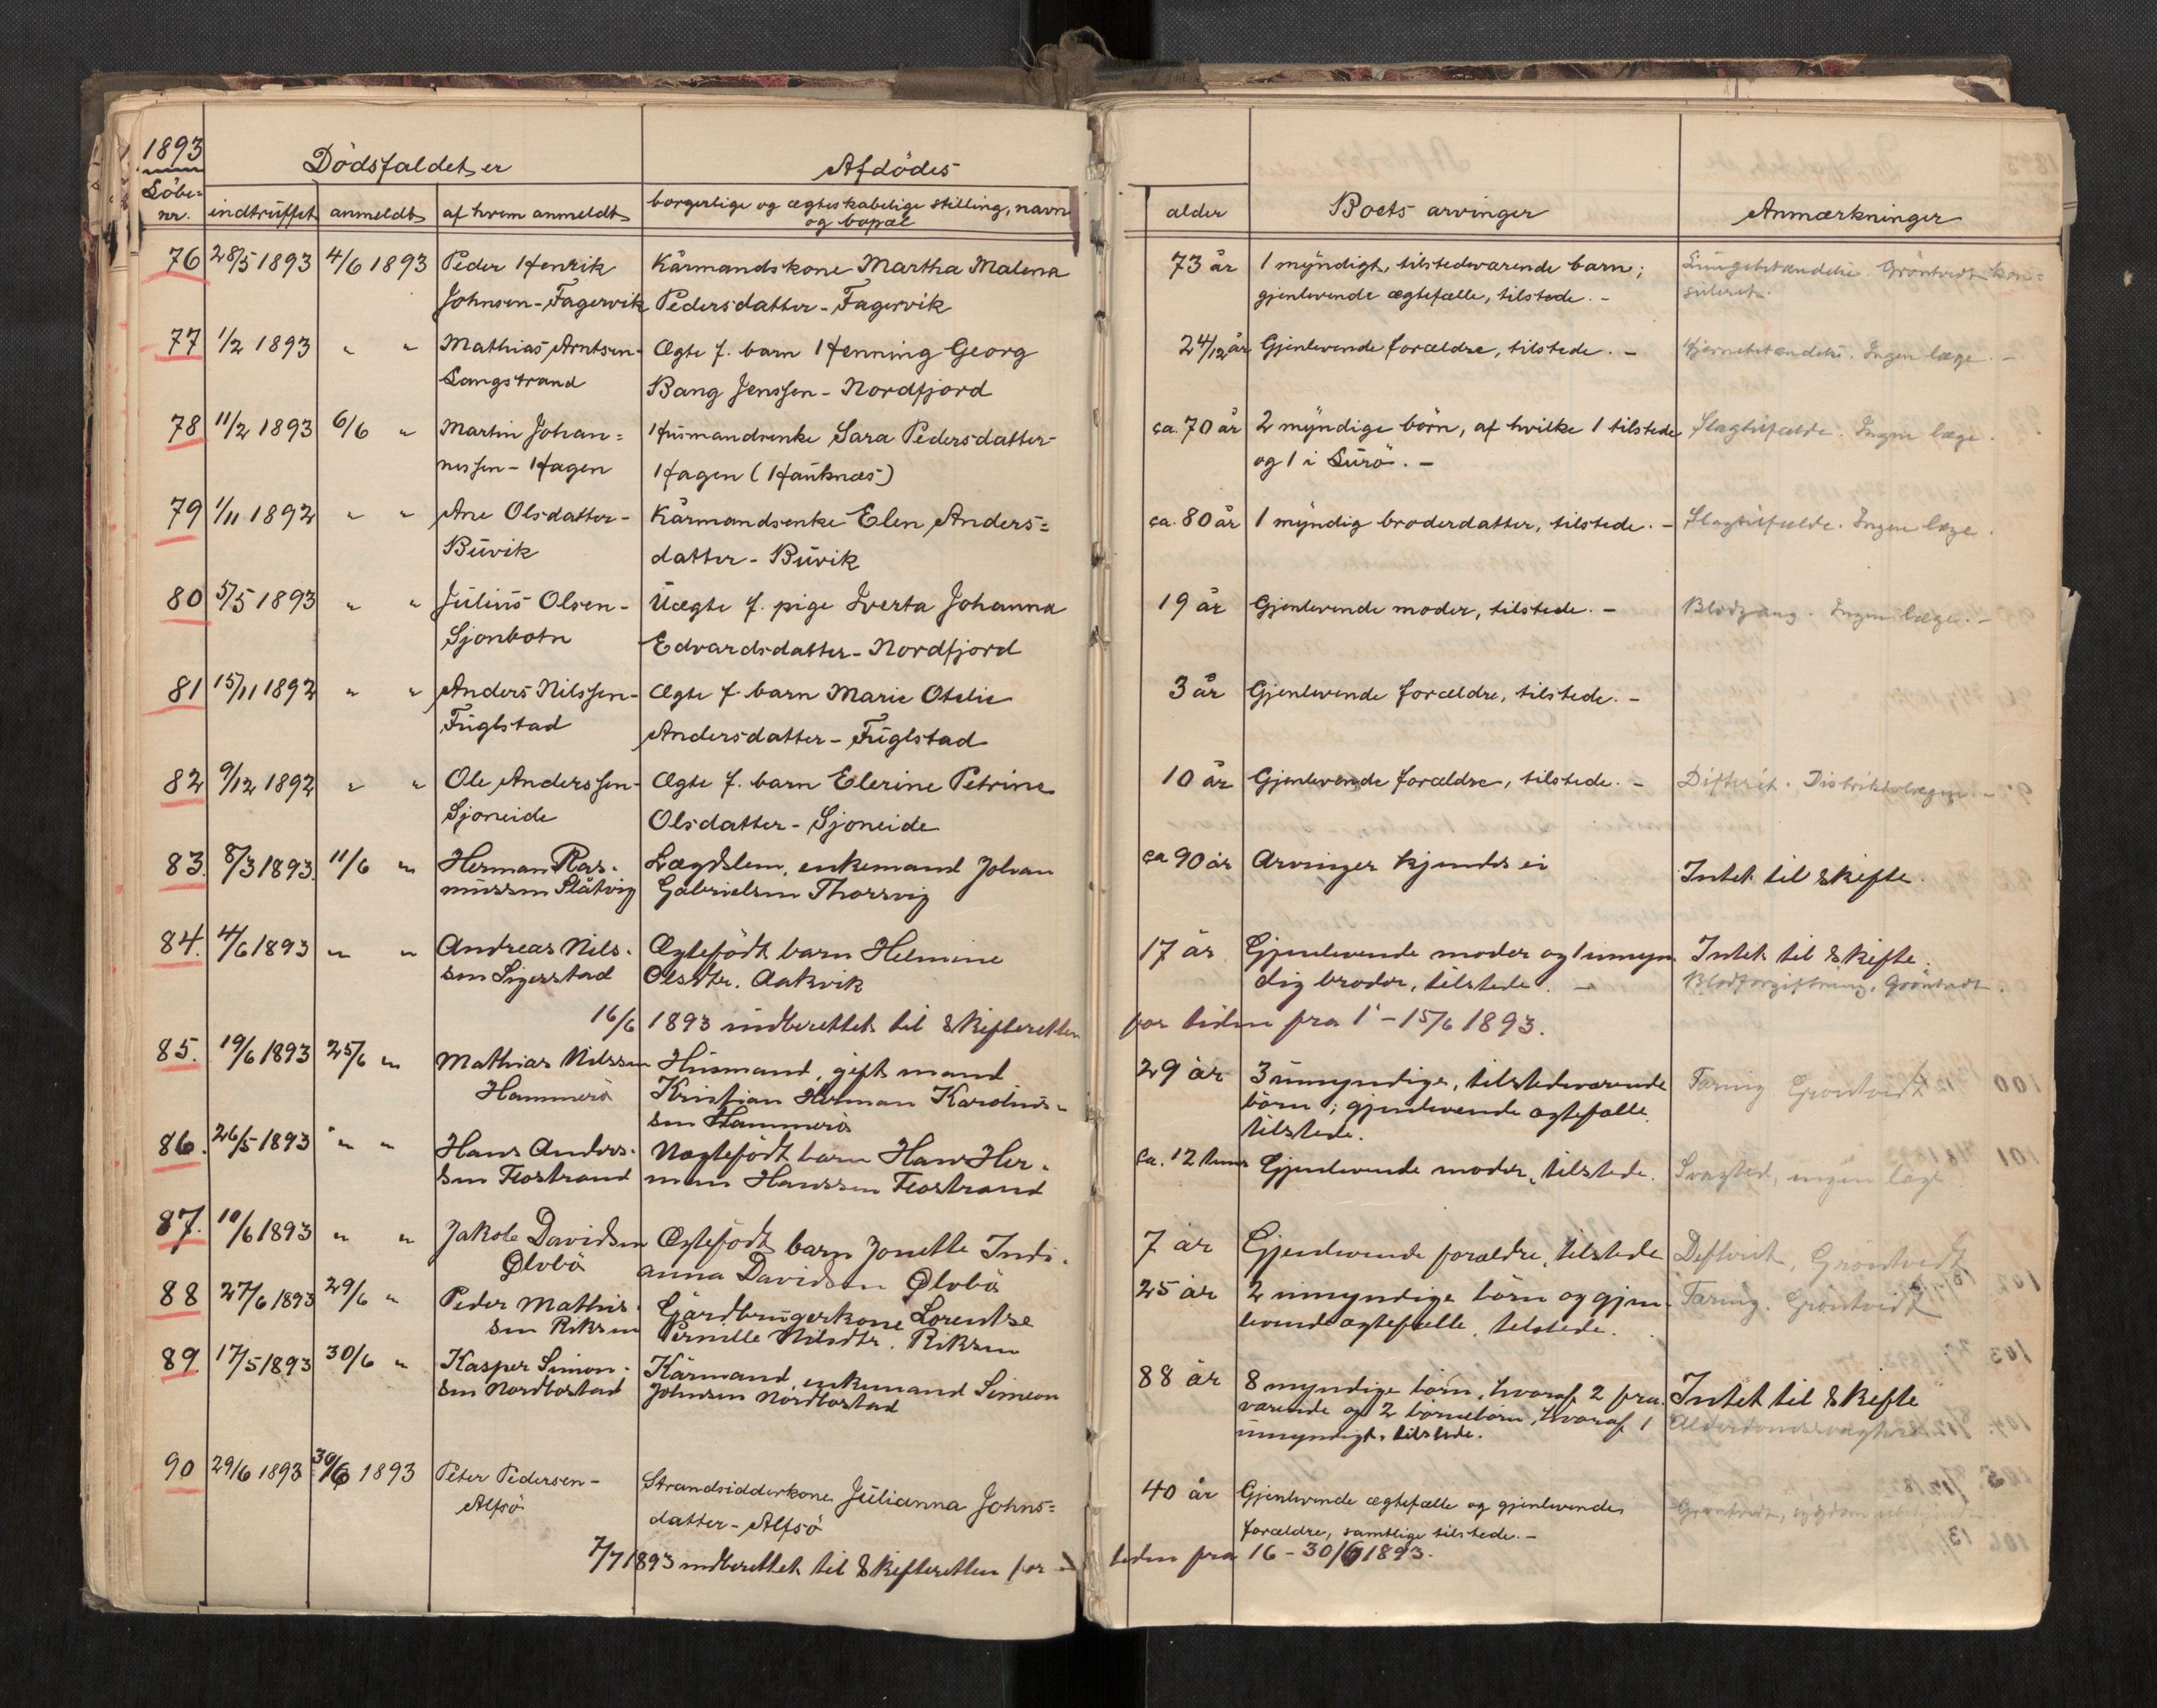 1893
Dödsfaldet er
Afdödes
Löbe=
nr.
indtruffet
anmeldt
af hvem anmeldt
borgerlige og ægteskabelige stilling, navn
og bopæl
alder
Boets arvinger
Anmærkninger
76 28/5 1893 4/6 1893 Peder Henrik Kårmandskone Martha Malena 73 år 1 myndigt, tilstedeværende barn; Lungebetændelse. Gröntvedt kon=
Johnsen - Fagervik Pedersdatter - Fagervik gjenlevende ægtefælle, tilstede. - suleret.
77 1/2 1893 " " Mathias Arntsen - Ægte f. barn Henning Georg 2 4/12 år Gjenlevende forældre, tilstede. - Hjernebetændelse. Ingen læge. -
Langstrand Bang Jenssen - Nordfjord
78 11/2 1893 6/6 " Martin Johan= Husmandsenke Sara Pedersdatter - ca. 70 år 2 myndige börn, af hvilke 1 tilstede Slagtilfælde. Ingen læge.
nessen - Hagen Hagen (Hauknæs) og 1 i Lurö. -
79 1/11 1892 " " Ane Olsdatter - Kårmandsenke Elen Anders= ca. 80 år 1 myndig broderdatter, tilstede. - Slagtilfælde. Ingen læge.
Buvik datter - Buvik
80 5/5 1893 " " Julius Olsen - Uægte f. pige Iverta Johanna 19 år Gjenlevende moder, tilstede. - Blodgang. Ingen læge. -
Sjonbotn Edvardsdatter - Nordfjord
81 15/11 1892 " " Anders Nilssen - Ægte f. barn Marie Otelie 3 år Gjenlevende forældre, tilstede. -
Fuglstad Andersdatter - Fuglstad
82 9/12 1892 " " Ole Anderssen - Ægte f. barn Elerine Petrine 10 år Gjenlevende forældre, tilstede. - Difterit. Distriktslægen. -
Sjoneide Olsdatter - Sjoneide
83. 8/3 1893. 11/6 " Herman Ras- Lægdslem, enkemand Johan ca 90 år Arvinger kjendes ei Intet til skifte.
mussen Slåtvig Gabrielsen Thorsvig
84. 4/6 1893 " " Andreas Nils- Ægtefödt barn Helmine 17 år Gjenlevende moder og 1 umyn Intet til skifte.
sen Sigerstad Olsdtr. Aakvik dig broder, tilstede. - Blodforgiftning, Gröntvedt.
16/6 1893 indberettet til skifteretten for tiden fra 1' - 15/6 1893.
85. 19/6 1893 25/6 " Mathias Nilssen Husmand, gift mand 29 år 3 umyndige, tilstedeværende Tæring Gröntvedt
Hammerö Kristian Herman Karolius- börn; gjenlevende ægtefælle
sen Hammerö tilstede.
86. 26/5 1893 " " Hans Anders- Uægtefödt barn Hans Her- ca. 12 timer Gjenlevende moder, tilstede. Svaghed, ingen læge
sen Flostrand man Hanssen Flostrand
87. 10/6 1893 " " Jakob Davidsen Ægtefödt barn Jonette Indi- 7 år Gjenlevende forældre, tilstede Difterit, Gröntvedt
Ølvbö anna Davidsen Ølvbö
88 27/6 1893 29/6 " Peder Mathis- Gårdbrugerkone Lorentse 25 år 2 umyndige börn og gjen- Tæring. Gröntvedt
sen Riksen Pernille Nilsdtr. Riksen levende ægtefælle, tilstede.
89. 17/5 1893 30/6 " Kasper Simon- Kårmand, enkemand Simeon 88 år 8 myndige börn, hvoraf 2 fra- Intet til skifte
sen Nordbostad Johnsen Nordbostad værende og 2 börnebörn, hvoraf 1 Alderdomssvaghed
umyndigt, tilstede.
90 29/6 1893 30/6 1893 Peter Pedersen - Strandsidderkone Julianna Johns= 40 år Gjenlevende ægtefælle og gjenlevende Gröntvedt,
Alfsö datter - Alfsö forældre, samtlige tilstede. -
7/7 1893 indberettet til skifteretten for tiden fra 16 - 30/6 1893.